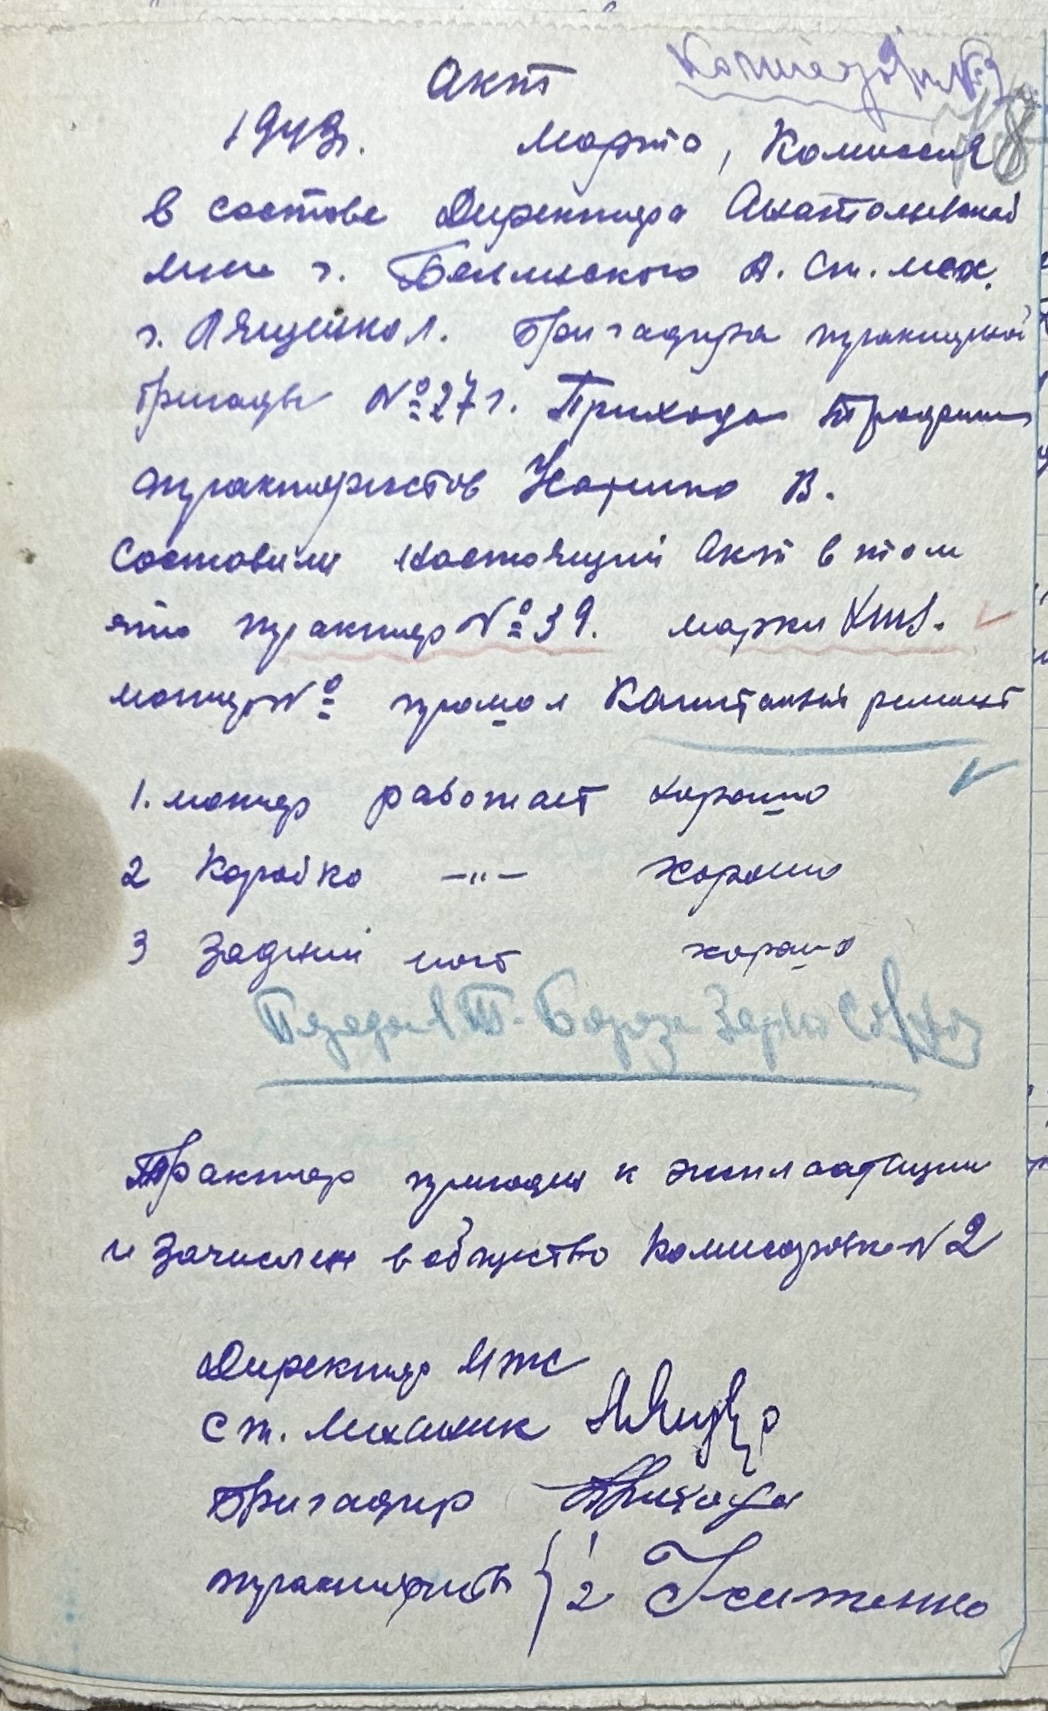 Акт
1943г. марта, Комиссия
в составе Директора Анатольевской
мтс т. Белинского А. Ст. мех.
т. Лященко Л. Бригадира тракторной
бригады № 27 т. Прихода
трактористов В.
Составили настоящий Акт в том
что трактор № 39. марки ХТЗ.
мотор № прошол Капитальный ремонт
1. мотор работает хорошо
2 Коробка —„— хорошо
3 Задний мост хорошо
Передан Т. Зерно Совхоз
Трактор пригоден к эксплоатации
и Зачислен в общество №2
Директор МТС
Ст. Механик
Бригадир Прихода
трактористы { 1
2